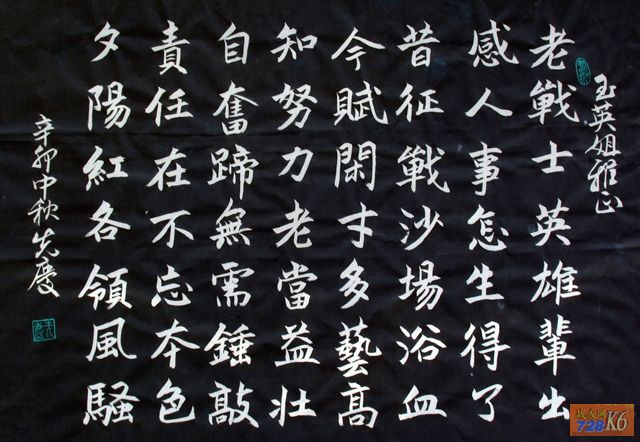 玉英姐雅正
老戰士英雄輩出
感人事怎生得了
昔征戰沙場浴血
今賦閑寸多藝高
知努力老當益壯
自奮蹄無需錘敲
責任在不忘本色
夕陽紅各領風騷
辛卯中秋先慶
戰友网
728K6